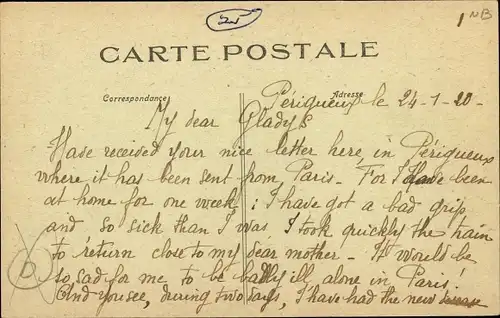 1 NB
CARTE POSTALE
Correspondance
Adresse
Périgueux le 24-1-20-
My dear Gladys
Have received your nice letter here, in Périgueux
where it has been sent from Paris - For I have been
at home for one week: I have got a bad grip
and so sick than I was, I took quickly the train
to return close to my dear mother - It would be
so sad for me to be badly ill, alone in Paris!
And you see, during two days, I have had the new